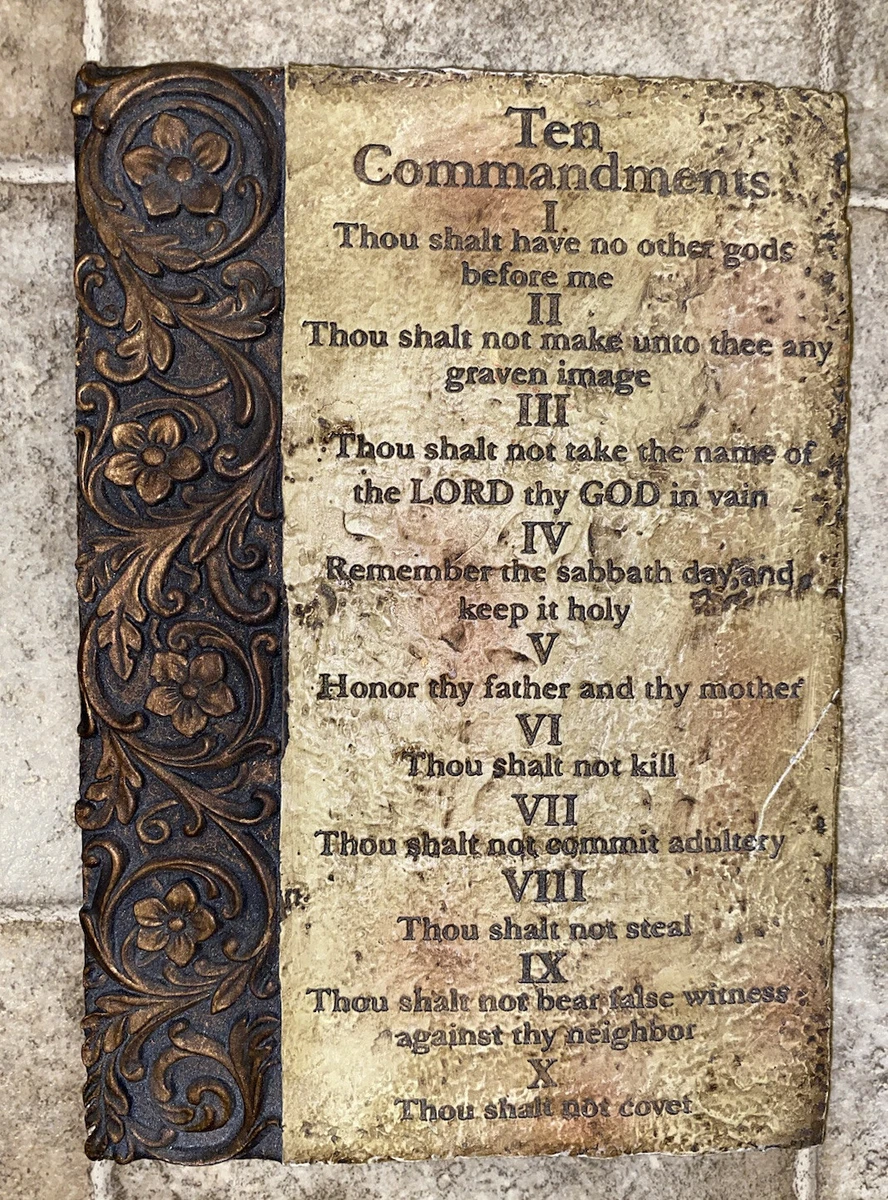 Ten
Commandments
I
Thou shalt have no other gods
before me
II
Thou shalt not make unto thee any
graven image
III
Thou shalt not take the name of
the LORD thy GOD in vain
IV
Remember the sabbath day, and
keep it holy
V
Honor thy father and thy mother
VI
Thou shalt not kill
VII
Thou shalt not commit adultery
VIII
Thou shalt not steal
IX
Thou shalt not bear false witness
against thy neighbor
X
Thou shalt not covet